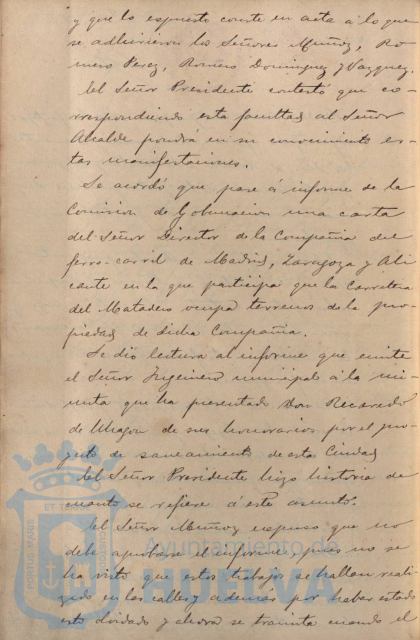 y que lo espuesto conste en acta á lo que
se adhirieron los Señores Muñoz, Ro
mero Perez, Romero Dominguez y Vazquez.
El Señor Presidente contestó que co-
rrespondiendo esta facultad al Señor
Alcalde pondrá en su conocimiento es-
tas manifestaciones.
Se acordó que pase á informe de la
Comision de Gobernacion una carta
del Señor Director de la Compañia del
ferro-carril de Madrid, Zaragoza y Ali
cante en la que participa que la Carretera
del Matadero ocupa terrenos de la pro-
piedad de dicha Compañia.
Se dió lectura al informe que emite
el Señor Ingeniero municipal á la mi-
nuta que ha presentado Don Recaredo
de Uhagon de sus honorarios por el pro
yecto de saneamiento de esta Ciudad
El Señor Presidente hizo historia de
cuanto se refiere á este asunto.
El Señor Muñoz espuso que no
debe aprobarse el informe, pues no se
ha visto que estos trabajos se hallan reali
zado en las calles y además por haber estado
esto olvidado y ahora se tramita cuando el
PORTUS MARIS
ET T
Ayuntamiento de
HUELVA